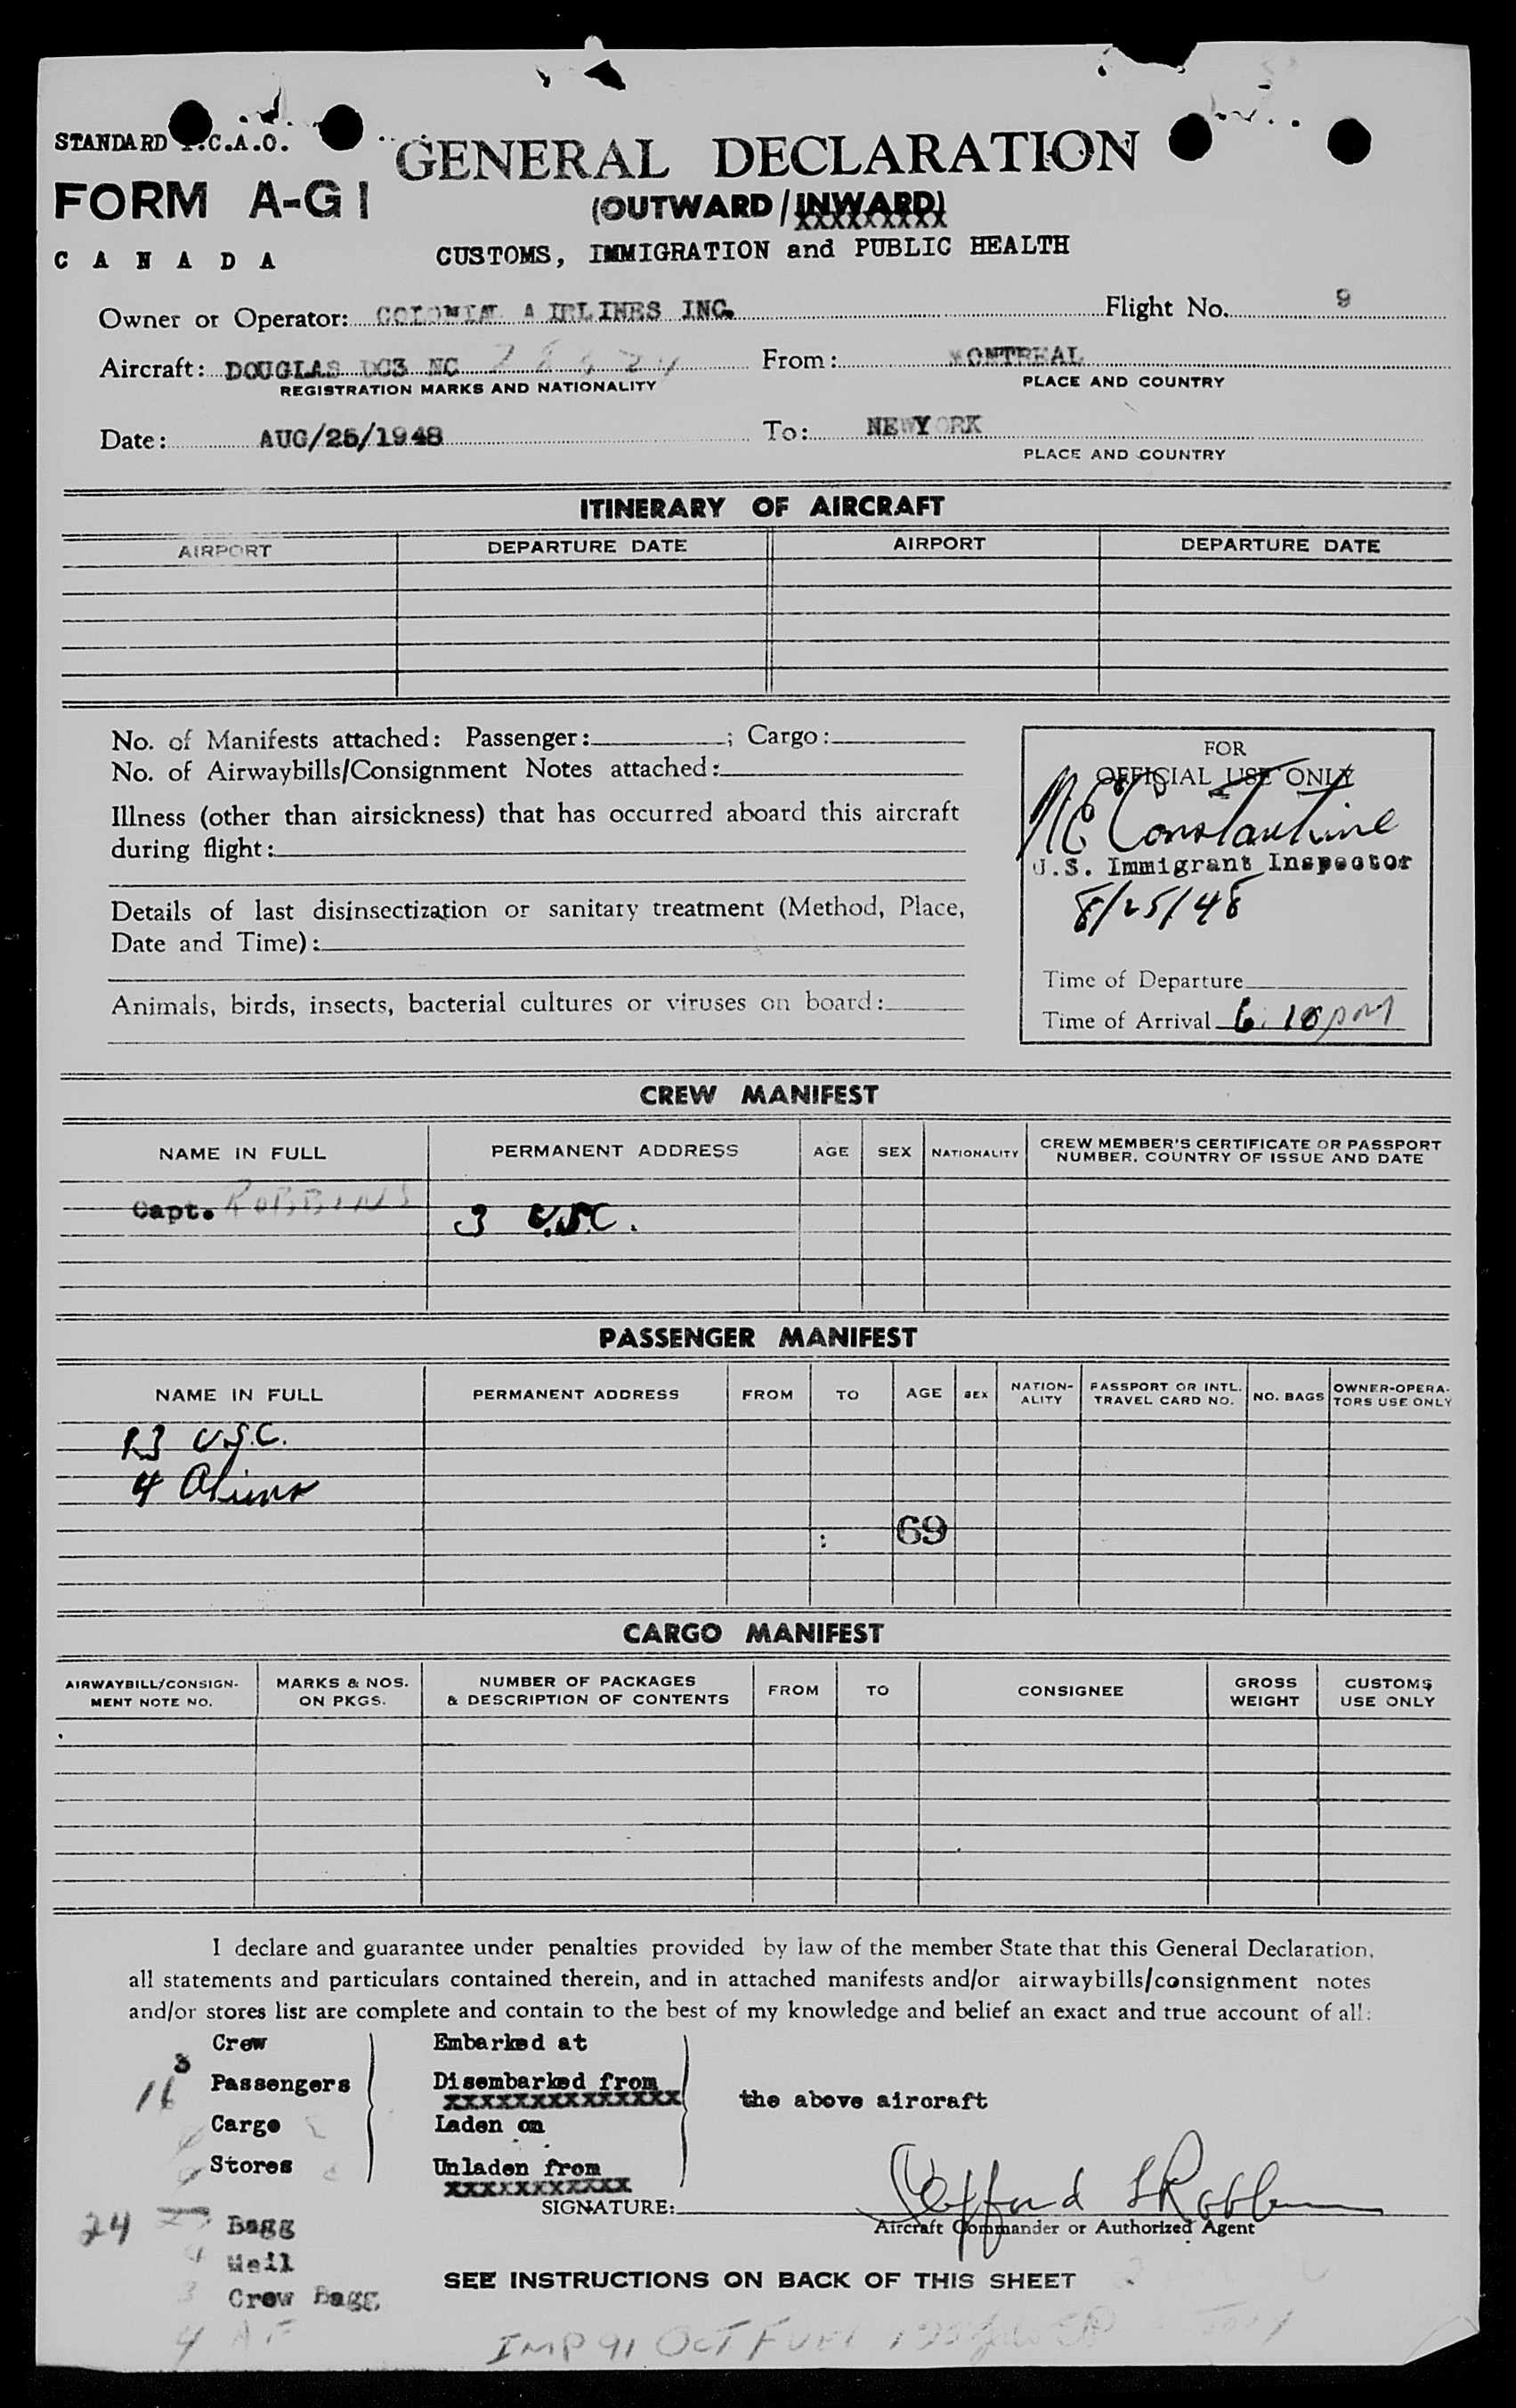 STANDARD I.C.A.O.
FORM A-G1
CANADA
GENERAL DECLARATION
(OUTWARD/INWARD)
XXXXXXXXX
CUSTOMS, IMMIGRATION and PUBLIC HEALTH
Owner or Operator: COLONIAL AIRLINES INC. Flight No. 9
Aircraft: DOUGLAS DC3 NC From: MONTREAL
REGISTRATION MARKS AND NATIONALITY PLACE AND COUNTRY
Date: AUG/25/1948 To: NEW YORK
PLACE AND COUNTRY
ITINERARY OF AIRCRAFT
AIRPORT DEPARTURE DATE AIRPORT DEPARTURE DATE
No. of Manifests attached: Passenger: ; Cargo:
No. of Airwaybills/Consignment Notes attached:
Illness (other than airsickness) that has occurred aboard this aircraft
during flight:
Details of last disinsectization or sanitary treatment (Method, Place,
Date and Time):
Animals, birds, insects, bacterial cultures or viruses on board:
FOR
OFFICIAL USE ONLY
Constantine
U.S. Immigrant Inspector
8/25/48
Time of Departure
Time of Arrival 6:10 pm
CREW MANIFEST
NAME IN FULL PERMANENT ADDRESS AGE SEX NATIONALITY CREW MEMBER'S CERTIFICATE OR PASSPORT
NUMBER, COUNTRY OF ISSUE AND DATE
Capt. ROBBINS
3 U.S.C.
PASSENGER MANIFEST
NAME IN FULL PERMANENT ADDRESS FROM TO AGE SEX NATION-
ALITY PASSPORT OR INTL.
TRAVEL CARD NO. NO. BAGS OWNER-OPERA-
TORS USE ONLY
U.S.C.
4 Aliens
69
CARGO MANIFEST
AIRWAYBILL/CONSIGN-
MENT NOTE NO. MARKS & NOS.
ON PKGS. NUMBER OF PACKAGES
& DESCRIPTION OF CONTENTS FROM TO CONSIGNEE GROSS
WEIGHT CUSTOMS
USE ONLY
I declare and guarantee under penalties provided by law of the member State that this General Declaration,
all statements and particulars contained therein, and in attached manifests and/or airwaybills/consignment notes
and/or stores list are complete and contain to the best of my knowledge and belief an exact and true account of all:
Crew Embarked at
3
16 Passengers Disembarked from
XXXXXXXXXXXXXX
the above aircraft
Cargo Laden on
Stores Unladen from
XXXXXXXXXXX
SIGNATURE:
Aircraft Commander or Authorized Agent
24 Bagg
Mail
3 Crew Bagg
SEE INSTRUCTIONS ON BACK OF THIS SHEET
4 AF
IMP 91 OCT FUEL